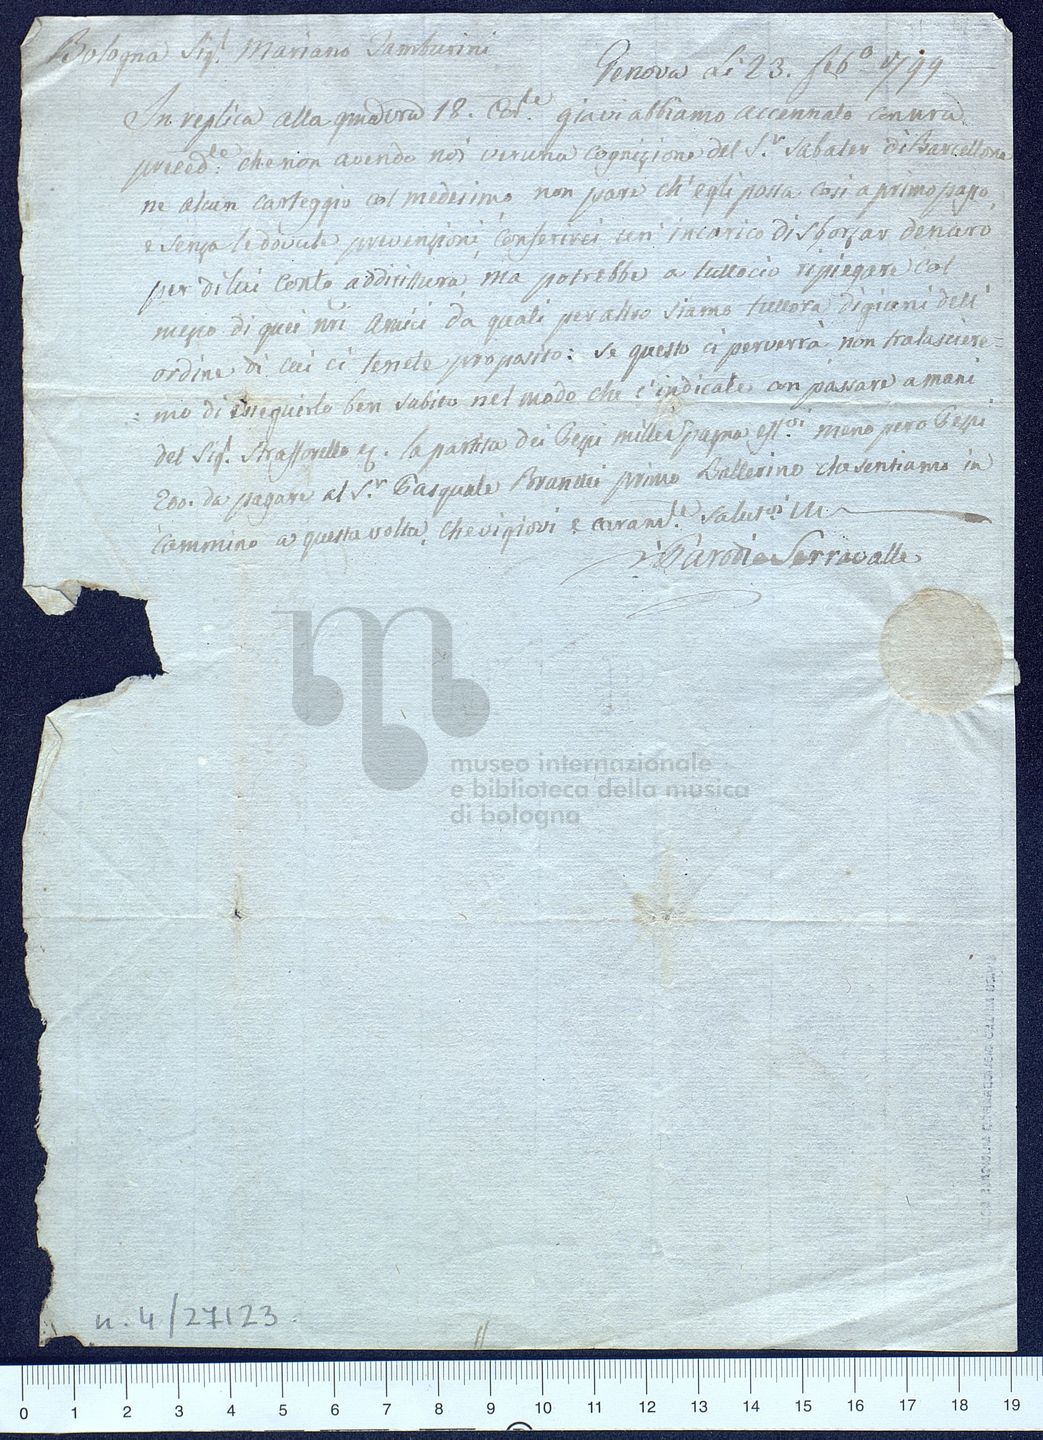 Bologna Sig.r Mariano Tamburini
Genova Li 23. feb.o 1799
In replica alla grad vra 18. Cor.te già vi abbiamo accennato con nra
preced.te che non avendo noi veruna cognizione del S.r Sabater di Barcellona
ne alcun carteggio col medesimo non pare ch'egli possa così a primo passo,
e senza le dovute prevenzioni, conferirci un' incarico di sborsar denaro
per di lui conto addirittura, ma potrebbe a tuttociò ripiegare col
mezzo di quei nri Amici da quali per altro siamo tuttora digiuni dell'
ordine di cui ci tenete proposito: se questo ci perverrà non tralascere=
=mo di eseguirlo ben subito nel modo che c'indicate con passare a mani
del Sig.r Strafforello la partita dei Pezzi mille meno però Pezzi
200. da pagare al S.r Pasquale Brunetti primo Ballerino che sentiamo in
cammino a questa volta, che vi giovi e caram.te salut.
Parodi e Serravalle
museo internazionale
e biblioteca della musica
di bologna
n. 4/27123
0 1 2 3 4 5 6 7 8 9 10 11 12 13 14 15 16 17 18 19